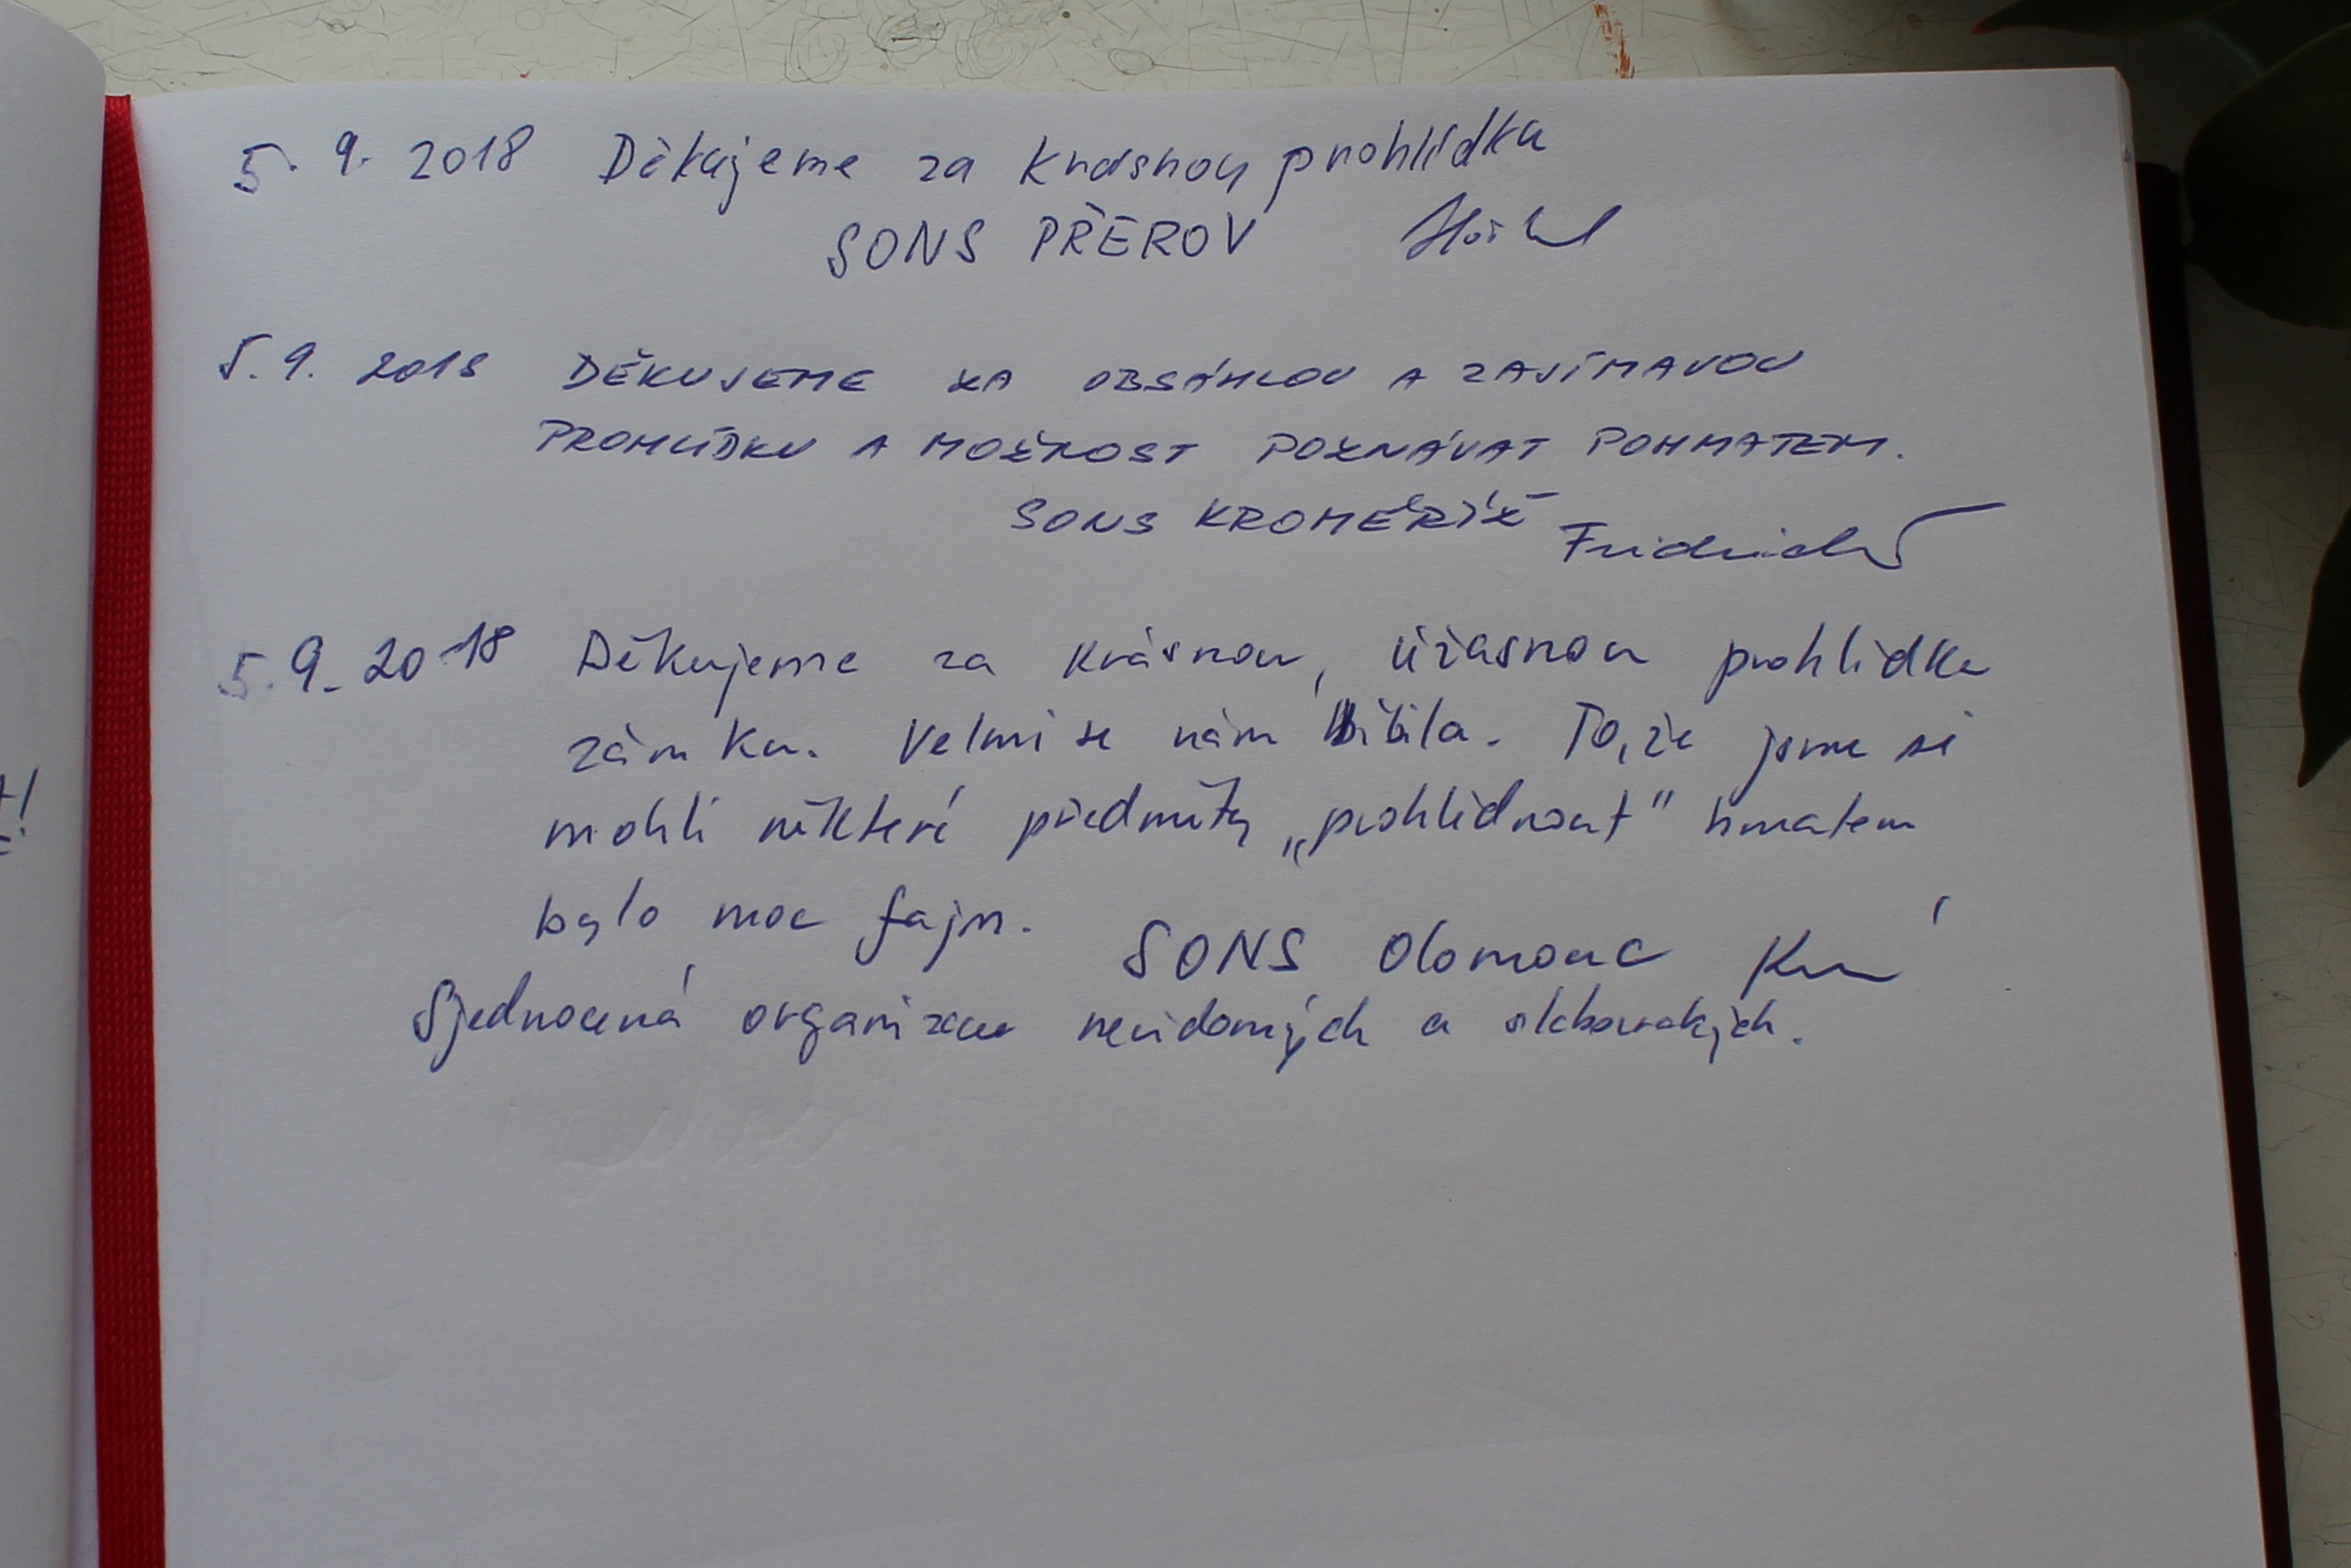 5. 9. 2018 Děkujeme za krásnou prohlídku
SONS PŘEROV
5. 9. 2018 DĚKUJEME ZA OBSÁHLOU A ZAJÍMAVOU
PROHLÍDKU A MOŽNOST POZNÁVAT POHMATEM.
SONS KROMĚŘÍŽ
5. 9. 2018 Děkujeme za krásnou, úžasnou prohlídku
zámku. Velmi se nám líbila. To, že jsme si
mohli některé předměty „prohlédnout" hmatem
bylo moc fajn. SONS Olomouc
Sjednocená organizace nevidomých a slabozrakých.